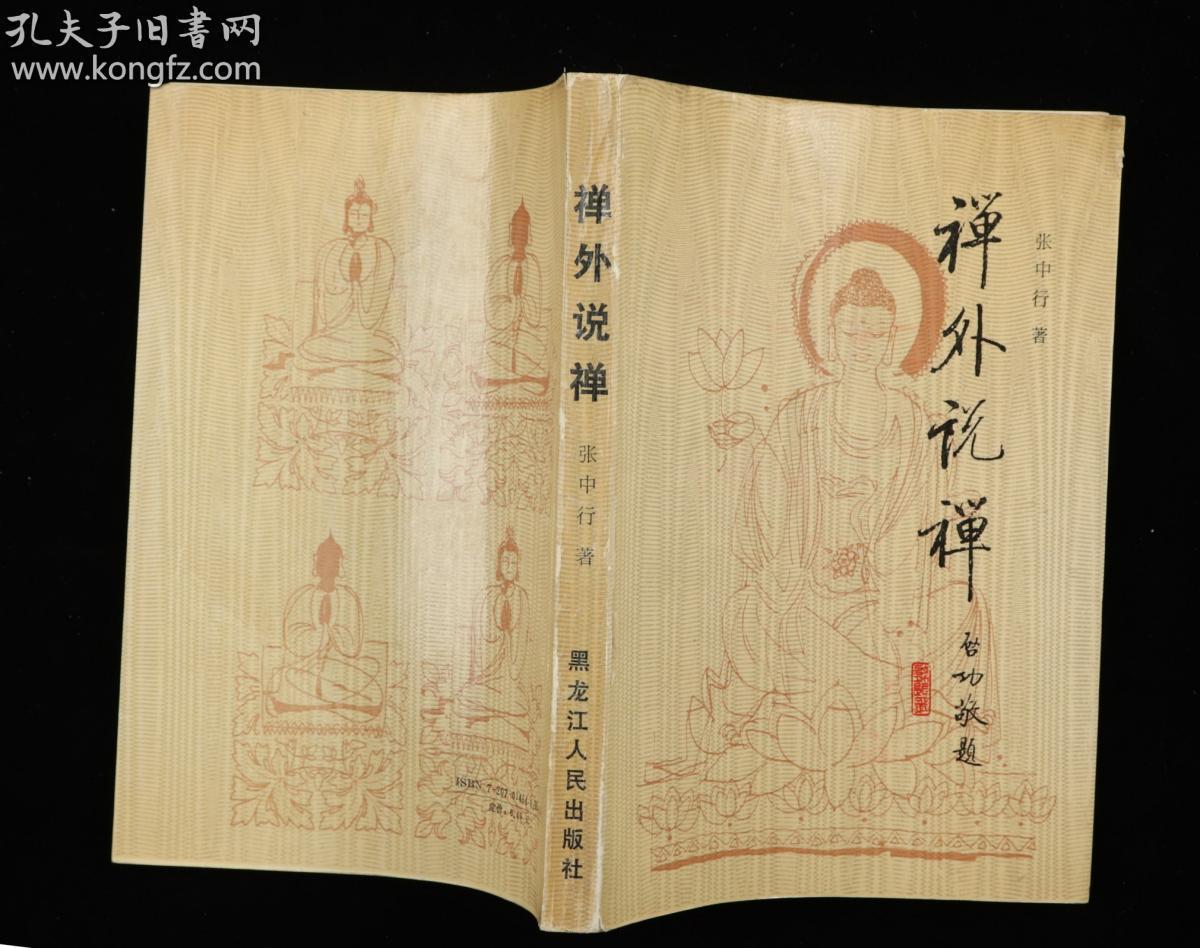 孔夫子旧書网
www.kongfz.com
禅外说禅
张中行 著
黑龙江人民出版社
禅外说禪
张中行 著
启功敬题